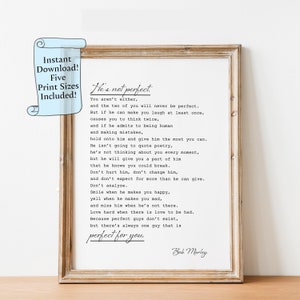 Instant
Download!
Five
Print Sizes
Included!
He's not perfect.
You aren't either,
and the two of you will never be perfect.
But if he can make you laugh at least once,
causes you to think twice,
and if he admits to being human
and making mistakes,
hold onto him and give him the most you can.
He isn't going to quote poetry,
he's not thinking about you every moment,
but he will give you a part of him
that he knows you could break.
Don't hurt him, don't change him,
and don't expect for more than he can give.
Don't analyze.
Smile when he makes you happy,
yell when he makes you mad,
and miss him when he's not there.
Love hard when there is love to be had.
Because perfect guys don't exist,
but there's always one guy that is
perfect for you.
Bob Marley